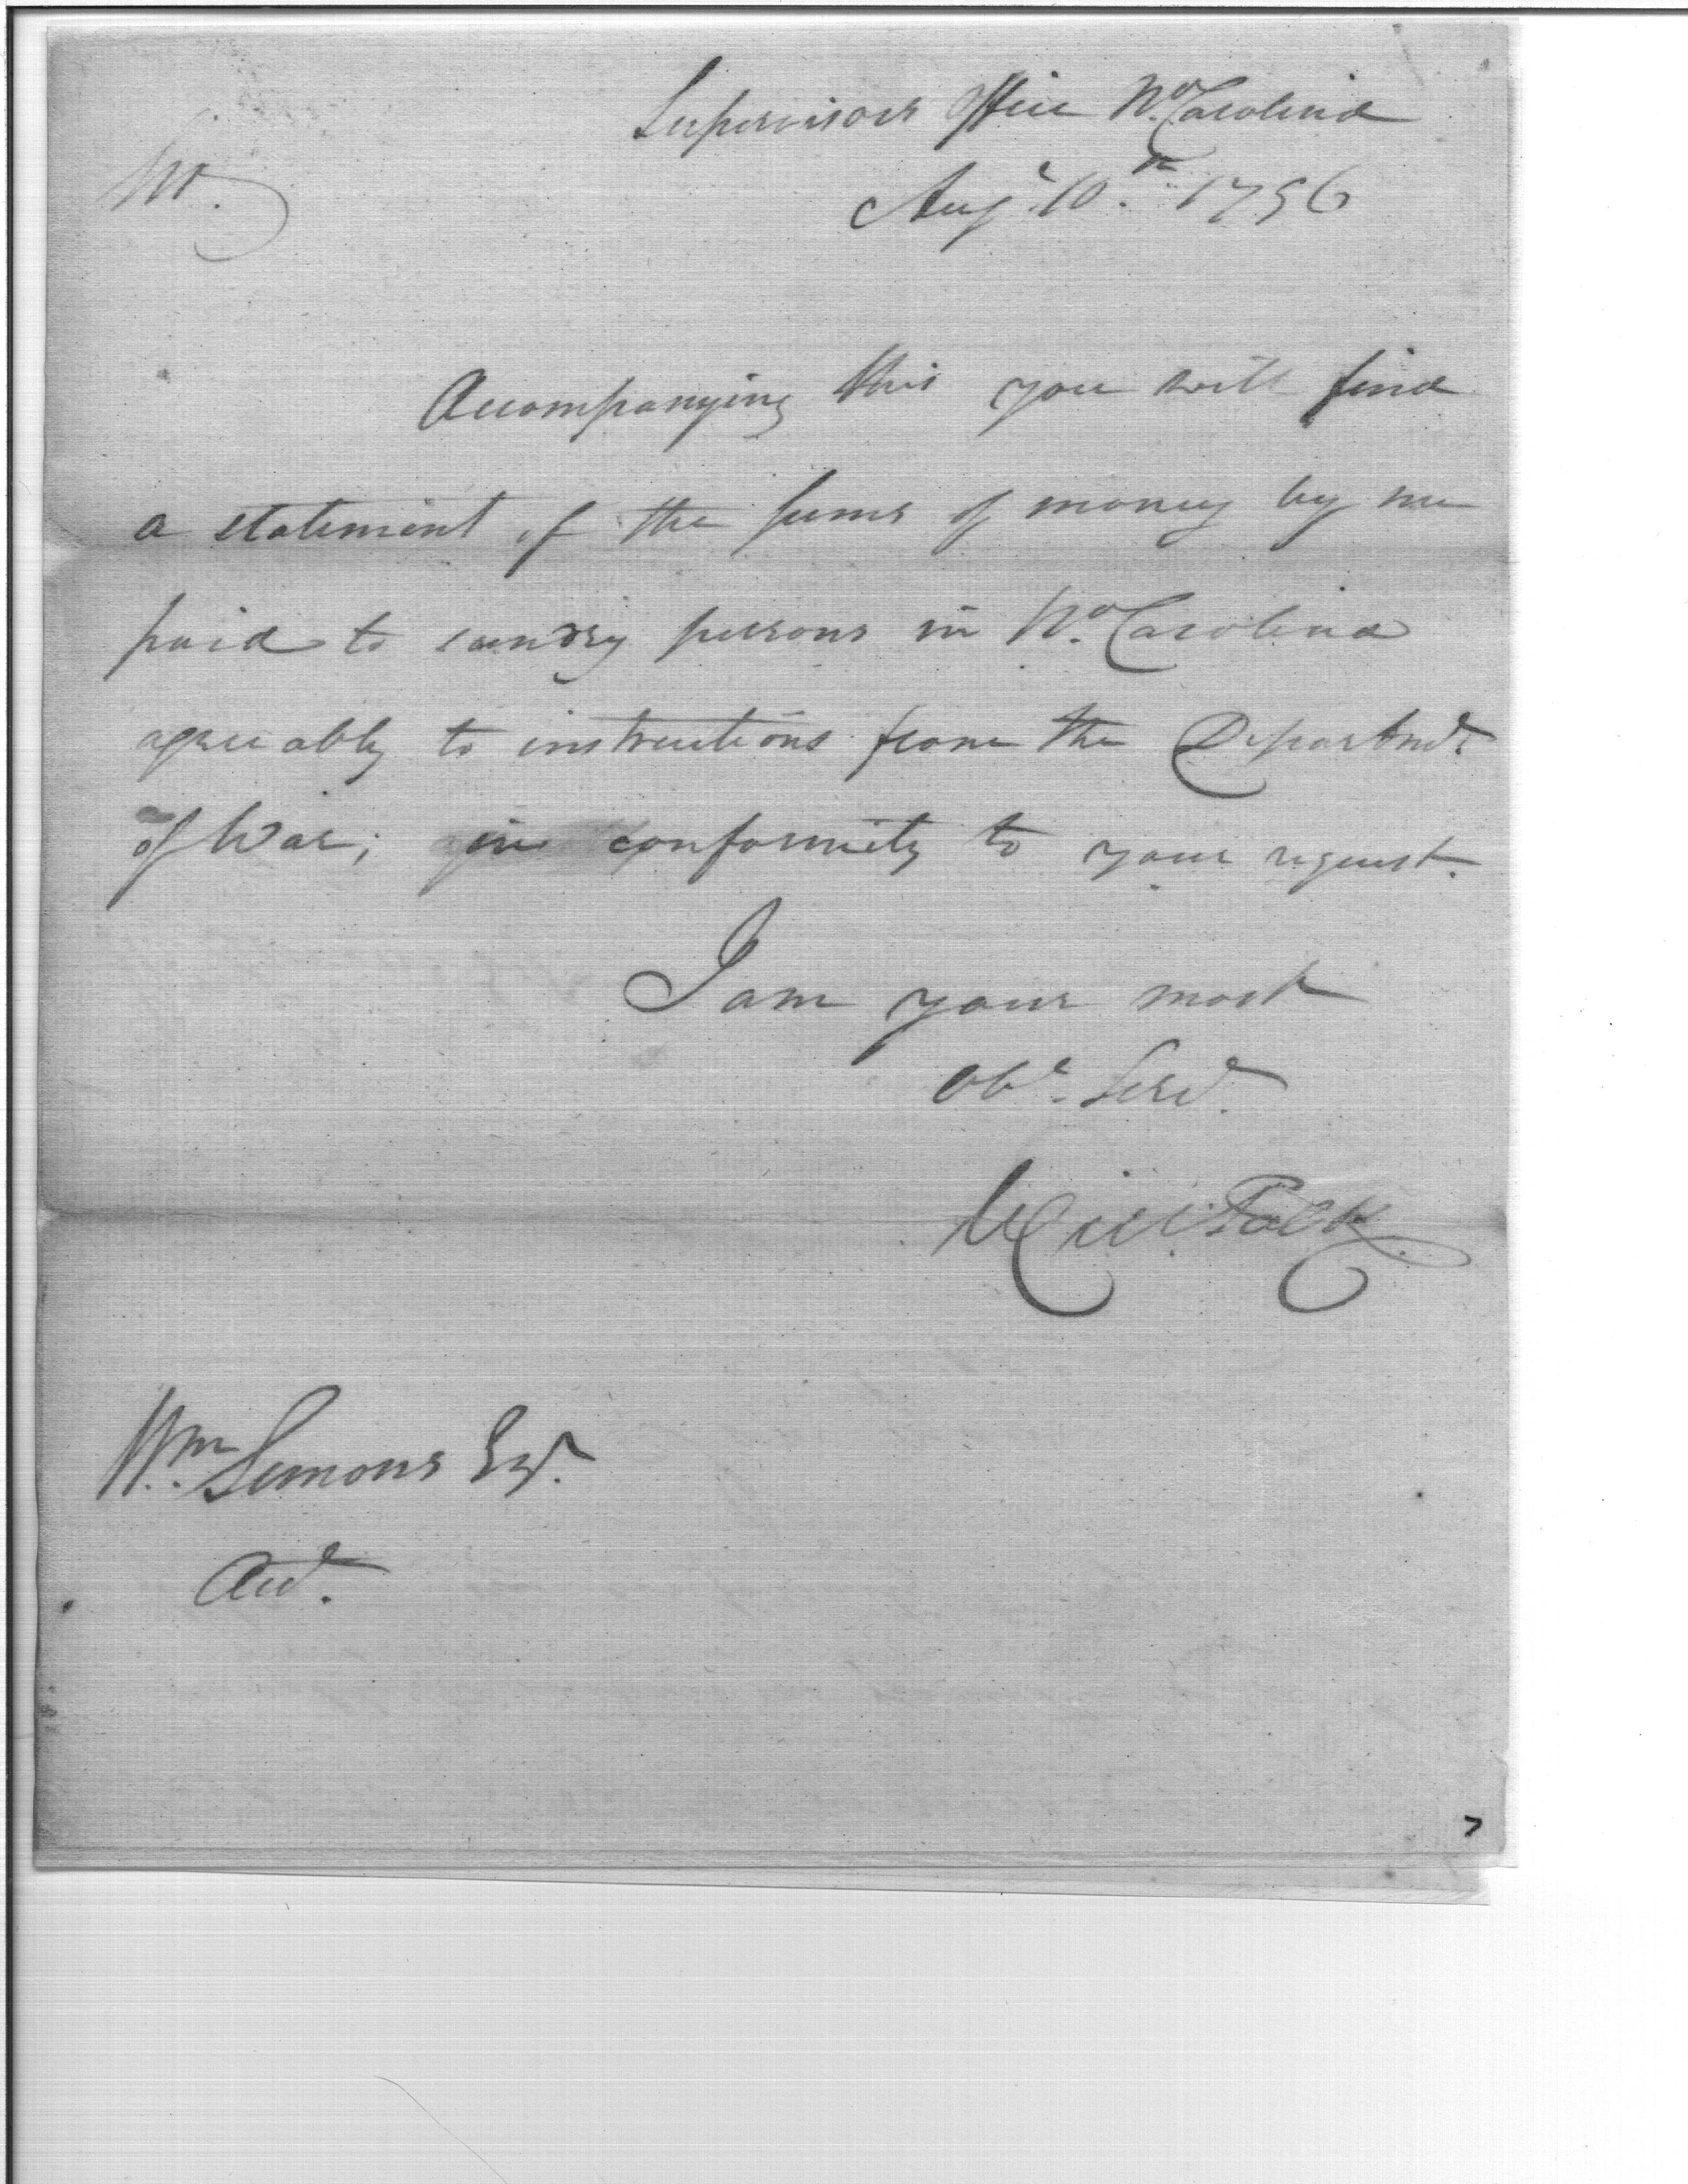 Supervisors Office No. Carolina
Augt. 10th. 1796
Sir.
Accompanying this you will find
a statement of the sums of money by me
paid to sundry persons in No. Carolina
agreeably to instructions from the Departmt.
of War; in conformity to your request.
I am your most
Obt. Servt.
Will Polk
Wm. Simons Esqr.
Acct.